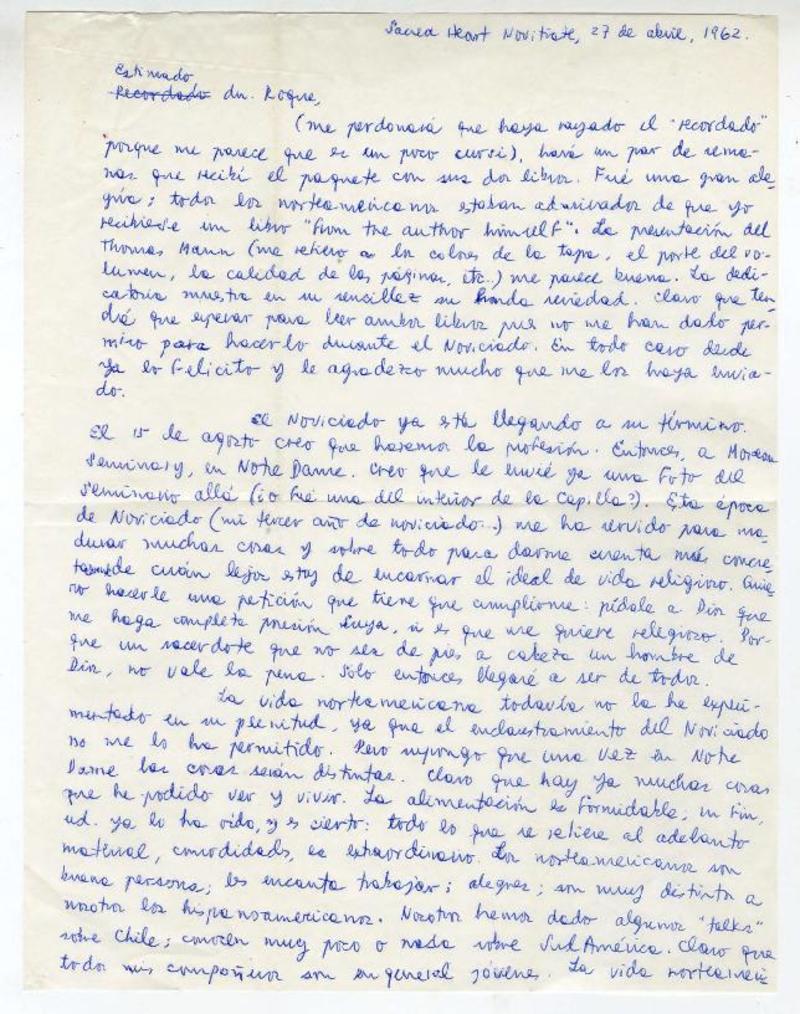 Sacred Heart Novitiate, 27 de abril, 1962.
Estimado
Recordado dn. Roque,
(me perdonará que haya rayado el "recordado"
porque me parece que es un poco cursi), hará un par de sema-
nas que recibí el paquete con sus dos libros. Fué una gran ale-
gría; todos los norteamericanos estaban admirados de que yo
recibiese un libro "from the author himself". La presentación del
Thomas Mann (me refiero a los colores de la tapa, el porte del vo-
lumen, la calidad de las páginas, etc..) me parece buena. La dedi-
catoria muestra en su sencillez su honda seriedad. Claro que ten-
drá que esperar para leer ambos libros pues no me han dado per-
miso para hacerlo durante el Noviciado. En todo caso desde
ya lo felicito y le agradezco mucho que me los haya envia-
do.
El Noviciado ya está llegando a su término.
El 15 de agosto creo que haremos la profesión. Entonces, a Moreau
Seminary, en Notre Dame. Creo que le envié ya una foto del
Seminario allá (¿o fué una del interior de la Capilla?). Esta época
de Noviciado (mi tercer año de noviciado...) me ha servido para ma-
durar muchas cosas y sobre todo para darme cuenta más concre-
tamente de cuán lejos estoy de encarnar el ideal de vida religioso. Quie-
ro hacerle una petición que tiene que cumplirme: pídale a Dios que
me haga completa posesión Suya, si es que me quiere religioso. Por-
que un sacerdote que no sea de pies a cabeza un hombre de
Dios, no vale la pena. Sólo entonces llegaré a ser de todos.
La vida norteamericana todavía no la he experi-
mentado en su plenitud, ya que el enclaustramiento del Noviciado
no me lo ha permitido. Pero supongo que una vez en Notre
Dame las cosas serán distintas. Claro que hay ya muchas cosas
que he podido ver y vivir. La alimentación es formidable; en fin,
ud. ya lo ha oído, y es cierto: todo lo que se refiere al adelanto
material, comodidades, es extraordinario. Los norteamericanos son
buenas personas; les encanta trabajar; alegres; son muy distintos a
nosotros los hispanoamericanos. Nosotros hemos dado algunos "talks"
sobre Chile; conocen muy poco o nada sobre Sud América. Claro que
todos mis compañeros son en general jóvenes. La vida norteameri-